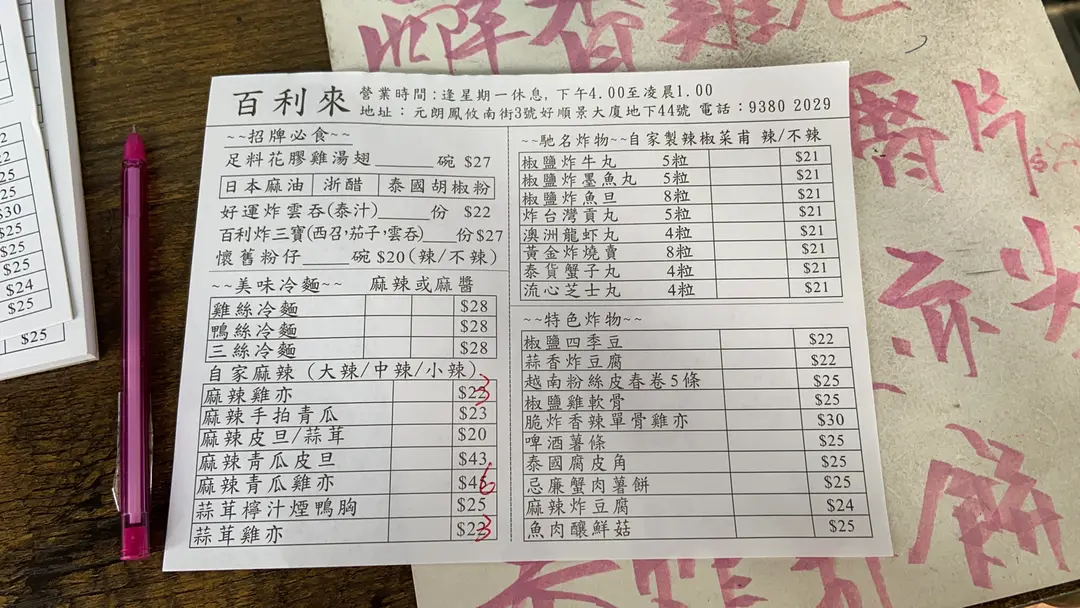 百利來
營業時間:逢星期一休息, 下午4.00至凌晨1.00
地址: 元朗鳳攸南街3號好順景大廈地下44號 電話:9380 2029
~~招牌必食~~
足料花膠雞湯翅______碗 $27
日本麻油 浙醋 泰國胡椒粉
好運炸雲吞(泰汁)_____份 $22
百利炸三寶(西召,茄子,雲吞)___份$27
懷舊粉仔_____碗 $20(辣/不辣)
~~美味冷麵~~ 麻辣或麻醬
雞絲冷麵 $28
鴨絲冷麵 $28
三絲冷麵 $28
自家麻辣 (大辣/中辣/小辣)
麻辣雞亦 $23
麻辣手拍青瓜 $23
麻辣皮旦/蒜茸 $20
麻辣青瓜皮旦 $43
麻辣青瓜雞亦 $46
蒜茸檸汁煙鴨胸 $25
蒜茸雞亦 $23
~~馳名炸物~~自家製辣椒菜甫 辣/不辣
椒鹽炸牛丸 5粒 $21
椒鹽炸墨魚丸 5粒 $21
椒鹽炸魚旦 8粒 $21
炸台灣貢丸 5粒 $21
澳洲龍虾丸 4粒 $21
黃金炸燒賣 8粒 $21
泰貨蟹子丸 4粒 $21
流心芝士丸 4粒 $21
~~特色炸物~~
椒鹽四季豆 $22
蒜香炸豆腐 $22
越南粉絲皮春卷5條 $25
椒鹽雞軟骨 $25
脆炸香辣單骨雞亦 $30
啤酒薯條 $25
泰國腐皮角 $25
忌廉蟹肉薯餅 $25
麻辣炸豆腐 $24
魚肉釀鮮菇 $25
$30
$25
$25
$25
$24
$25
$25
香雞
片